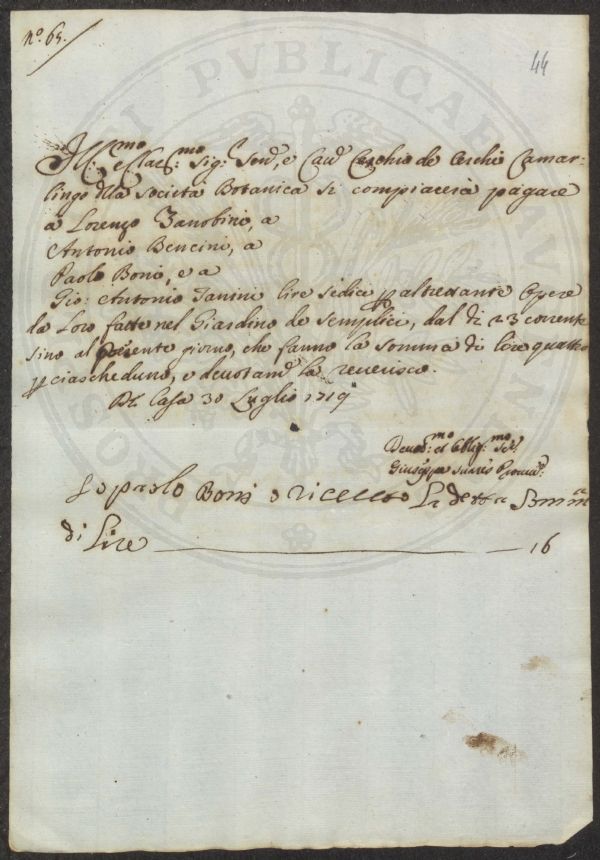 n.o 65.
44
Ill:mo e Clar:mo Sig:r Send, e Cav Cerchio de Cerchi Camar-
lingo della Società Botanica si compiacerà pagare
a Lorenzo Zanobini, a
Antonio Bencini, a
Paolo Boni, e a
Gio: Antonio Janini lire sedici p altrettante Opere
da Loro fatte nel Giardino de Semplici, dal dì 23 corrente
sino al presente giorno, che fanno la somma di lire quattro
p ciascheduno, e la reverisco.
Di Casa 30 Luglio 1719
Devot:mo et Obblig:mo Ser:
Giuseppe
Io paolo Boni o ricevuto La detta Somma
di Lire 16